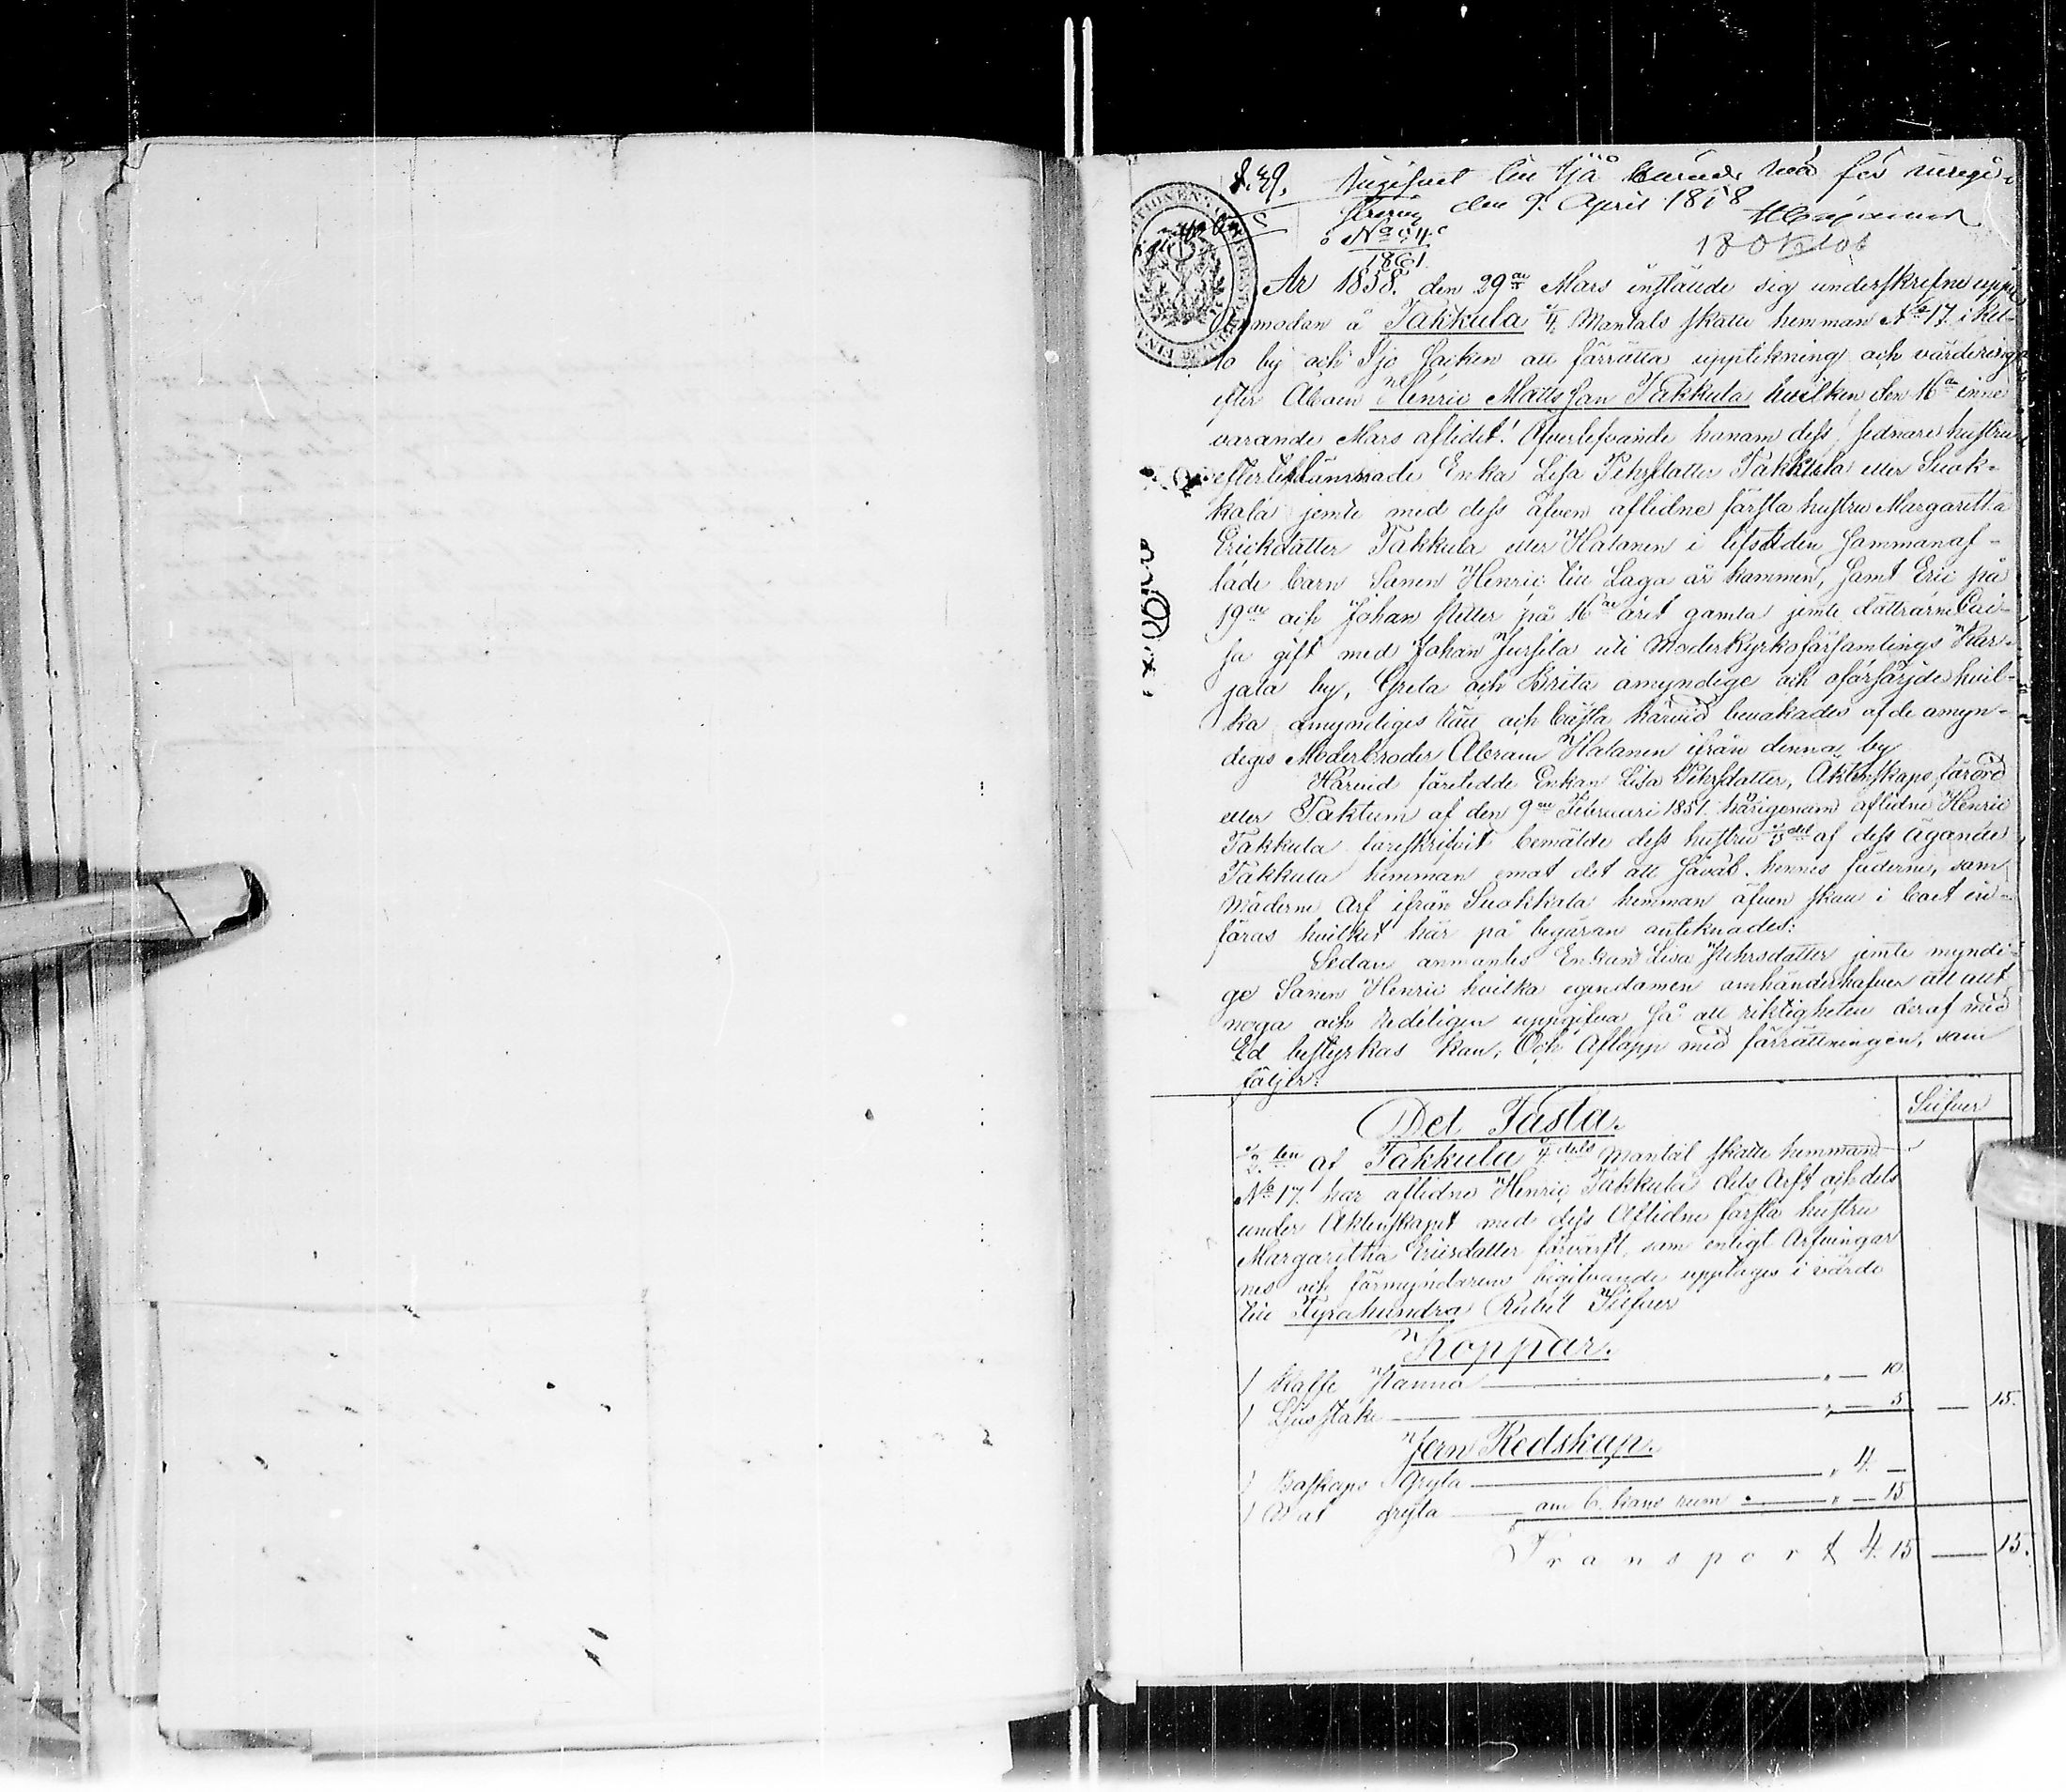 den 9. April 1858
No 54
1861
18 Oktob
År 1858. den 29de Mars instälde sig underskrifne uppå
anmodan å Takkula 1/4 Mantals skatte hemman No 17. i
by och Socken att förrätta upptekning och värdering
efter Aboen Henric Mattsson Takkula hvilken den 16de inne
varande Mars aflidit! Öfverlefvande honom dess sednare hustru
efterlemnade Enka Lisa Pehrsdotter Takkula eller Suok-
kala jemte med dess äfven aflidne första hustru Margaretta
Ericksdotter Takkula eller Halanen i lifstiden sammanaf-
lade barn Sonen Henric till Laga år kommen, samt Eric på
19de och Johan Petter på 16de året gamla jemte döttrarne Cai-
sa gift med Johan Jussila uti Moderkyrkoförsamlings Kar-
jala by, Greta och Brita omyndige och oförsörjde hvil-
ka omyndiges rätt och bästa härvid bevakades af de omyn-
diges Moderbroder Abram Halanen ifrån denna by
Härvid företedde Enkan Lisa Pehrsdotter, Äktenskaps förord
eller Paktum af den 9de Februari 1851. härigenom aflidne Henric
Takkula bemälde dess hustru 1/3del af dess ägande
Takkula hemman emot det att såväl hennes fäderne, som
Möderne Arf ifrån Suokkala hemman äfven skall i boet in-
föras hvilket här på begäran anteknades:
Sedan anmantes Enkan Lisa Pehrsdotter jemte myndi-
ge Sonen Henric hvilka egendomen omhänderhafver att allt
noga och redeligen uppgifva så att riktigheten deraf med
Ed bestyrkas kan, Och Aflopp med förrättningen, som
följer:
Silfver
Det Fasta.
1/2ten af Takkula 1/4dels Mantal skatte hemman
No 17. har aflidne Henric Takkula dels Arft och dels
under Äktenskapet med dess Aflidne första hustru
Margaritha Ericsdotter förvärft, som enligt Arfvingar
nes och förmyndarens begifvande upptages i värde
till Fyrahundra Rubel Silfver
Koppar.
1 Kaffe Panna " — 10.
1 Ljusstake " — 5 — 15.
Jern Redskap.
1 Boskaps Gryta " 4. —
1 Mat gryta om 6. kans rum " — 15
Transport 4. 15 — 15.